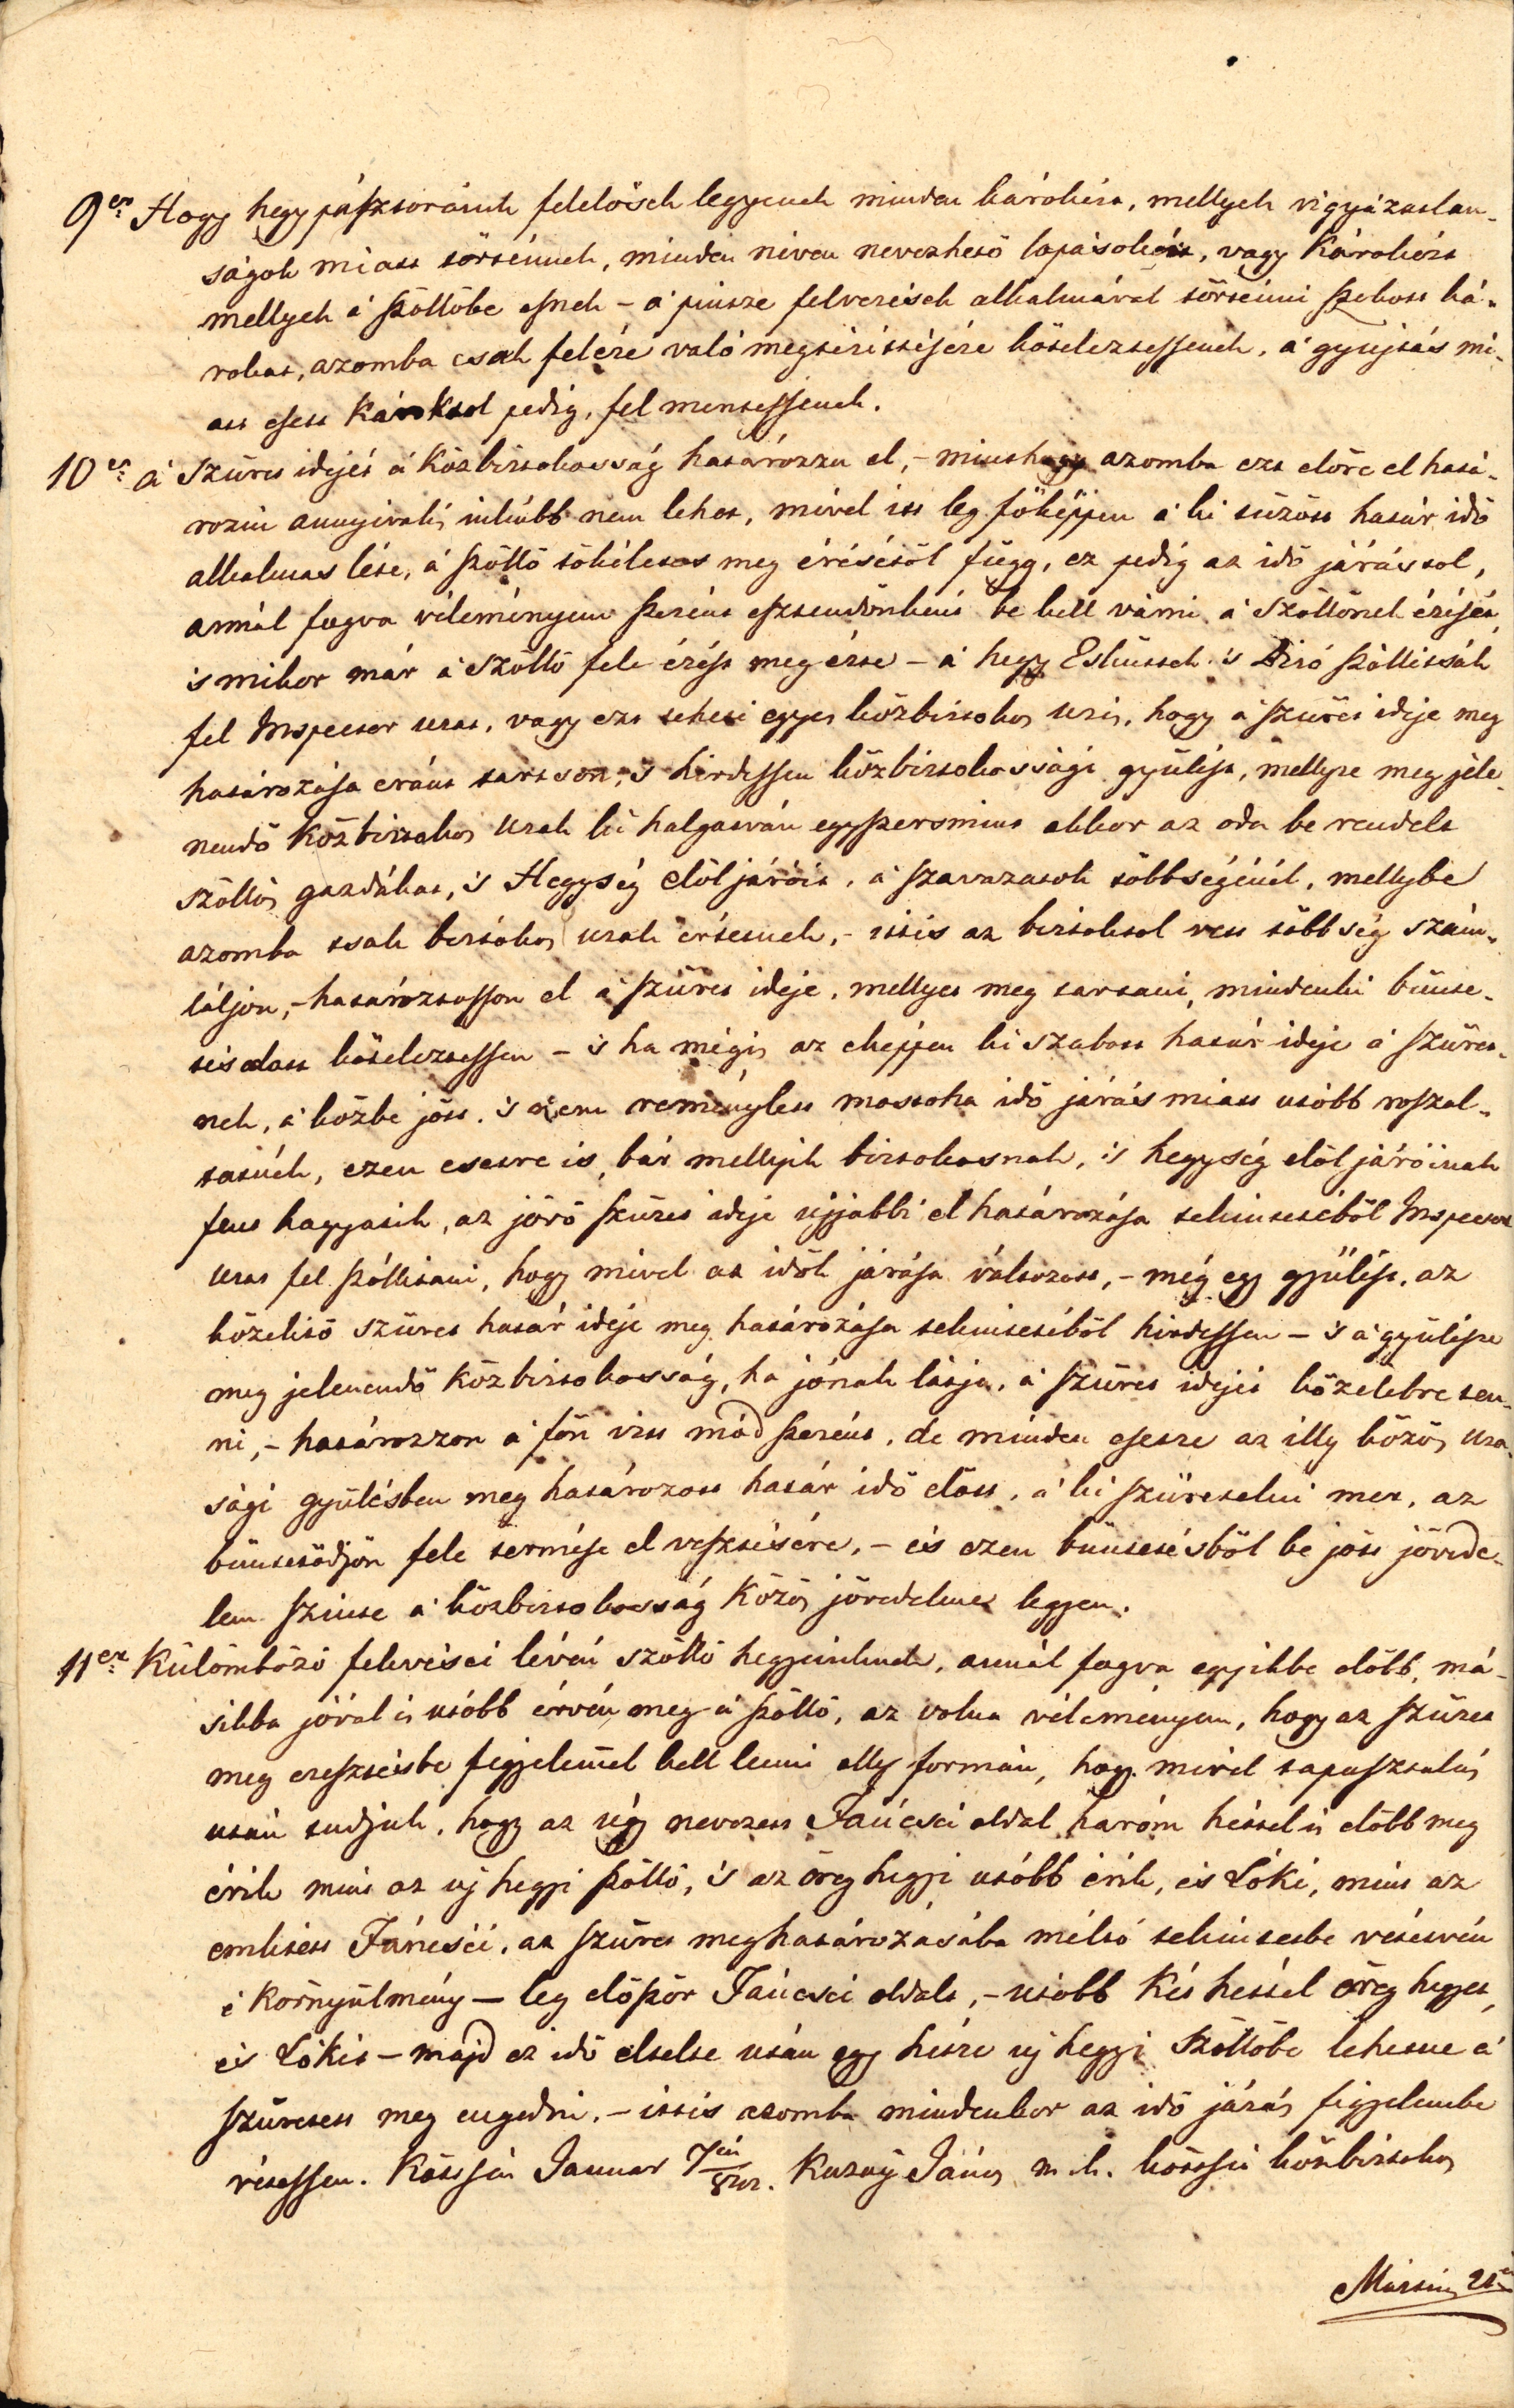 9er Hogy hegy pásztoraink felelősek legyenek minden károkért, mellyek vigyázatlan-
ságok miatt történnek, minden néven nevezhető lopásokért, vagy Károkért
mellyek á szőllőbe esnek – á pintze felverések alkalmával történni szokott ká-
rokat, azomba csak felére való megtérittésére köteleztessenek, á gyujtás mi-
att esett Károktol pedig, fel mentessenek.
10er á Szüret idejét á Közbirtokosság határozza el, – minthogy azomba ezt előre el hatá-
rozni annyival is inkább nem lehet, mivel itt leg főképpen á ki tűzött határ idő
alkalmas léte, á szőllő tökéletes meg érésétől függ, ez pedig az idő járástol,
annál fogva véleményem szerént esztendőnként be kell várni á Szőllőnek érését,
is mikor már á Szőllő fele érését meg érte – á hegy Esküttek is Biró szóllittsák
fel Inspector urat, vagy ezt teheti egyes közbirtokos ur is, hogy á szüret ideje meg
határozása eránt tartson, 's hirdessen közbirtokossági gyülést, mellyre meg jele-
nendő közbirtokos Urak ki halgatván egyszersmint akkor az oda be rendelt
szőllős gazdákat, 's Hegység előljáróit, á szavazatok többségénél, mellybe
azomba tsak birtokos urak értetnek, – ittis az birtoktol vett többség szám-
láljon, – határoztasson el á szüret ideje, mellyet meg tartani, mindenki bünte-
tés alatt köteleztessen – 's ha mégis az eképpen ki szabott határ ideje á szüret-
nek, á közbe jött, 's nem reménylett mostoha idő járás miatt utóbb roszal-
tatnék, ezen esetre is, bár mellyik birtokosnak, 's hegység előljáróinak
fent hagyatik, az jövő szüret ideje ujjabbi el határozása tekintetéből Inspector
urat fel szóllitani, hogy mivel az idők járása változott, – még egy gyülést, az
közelitő szüret határ ideje meg határozása tekintetéből hirdessen – 's á gyülésre
meg jelenendő közbirtokosság, ha jónak látja, á szüret idejét közelebre ten-
ni, – határozzon á fön irtt mód szerént, de minden esetre az illy közös ura-
sági gyülésben meg határozott határ idő előtt, á ki szüretelni mer, az
büntetődjön fele termése el vesztésére, – és ezen büntetésből be jött jövede-
lem szinte á közbirtokosság közös jövedelme legyen.
11er Külömböző fekvései lévén szőllő hegyeinknek, annál fogva egyikbe előbb, má-
sikba jóval is utóbb érvén meg á szőllő, az volna véleményem, hogy az szüret
meg eresztésbe figyelemmel kell lenni olly formán, hogy mivel tapasztalás
után tudjuk, hogy az úgy nevezett Fáncsi oldal három héttel is előbb meg
érik mint az uj hegyi szőllő, 's az öreg hegyi utóbb érik, és Lóki, mint az
emlitett Fáncsii, az szüret meghatározásába méltó tekintetbe vétetvén
e környülmény – leg először Fáncsi oldalt, – utóbb Két héttel öreg hegyet,
és Lókit – majd ez idő eltelte után egy hétre uj hegyi Szőllőbe lehetne á
szüretett meg engedni. – ittis azomba mindenkor az idő járás figyelembe
vétessen. Januar 7én Kuzay János m. k. közbirtokos